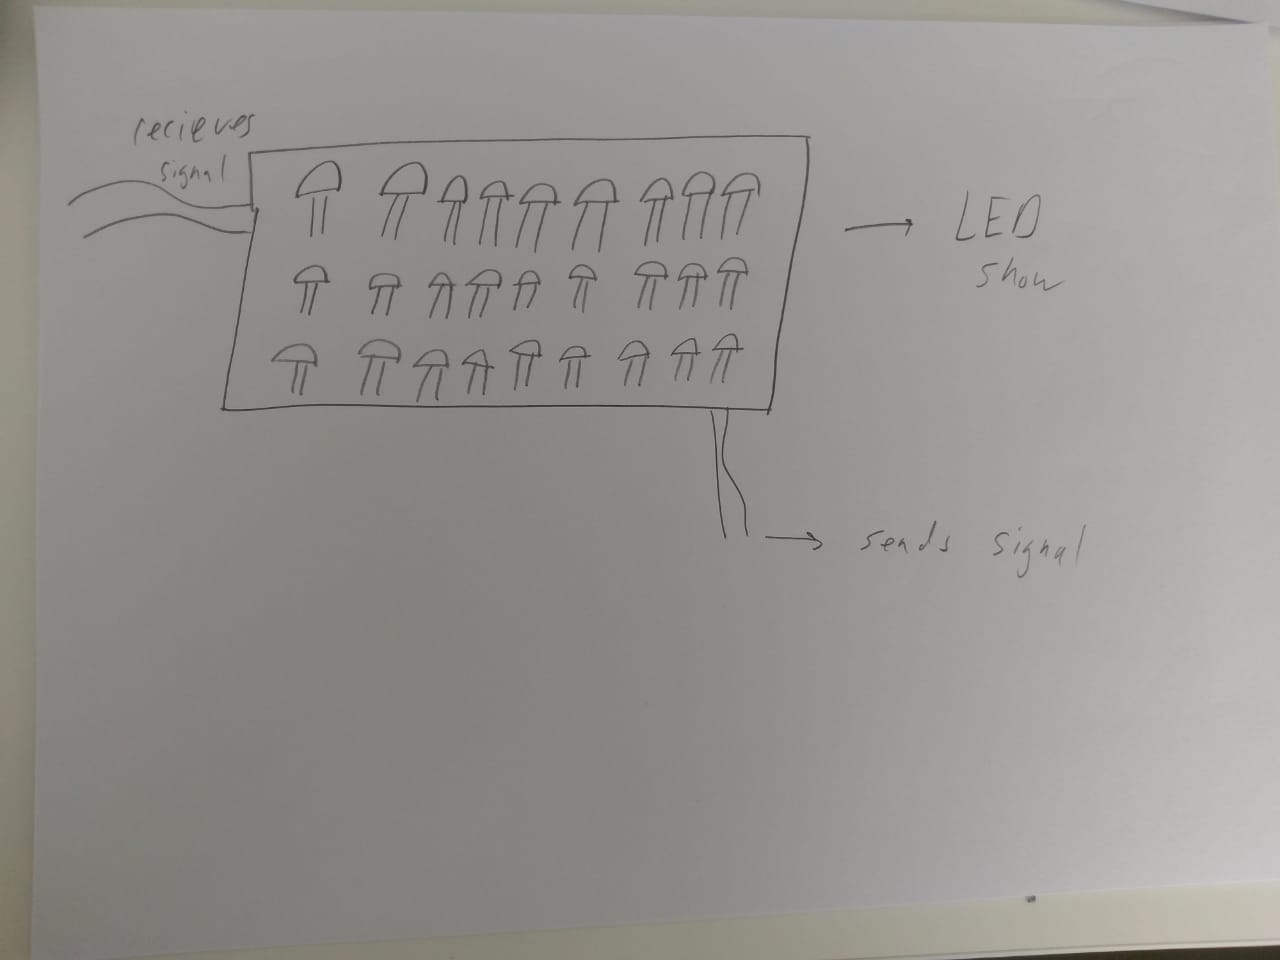 recieves
signal
LED
show
sends signal